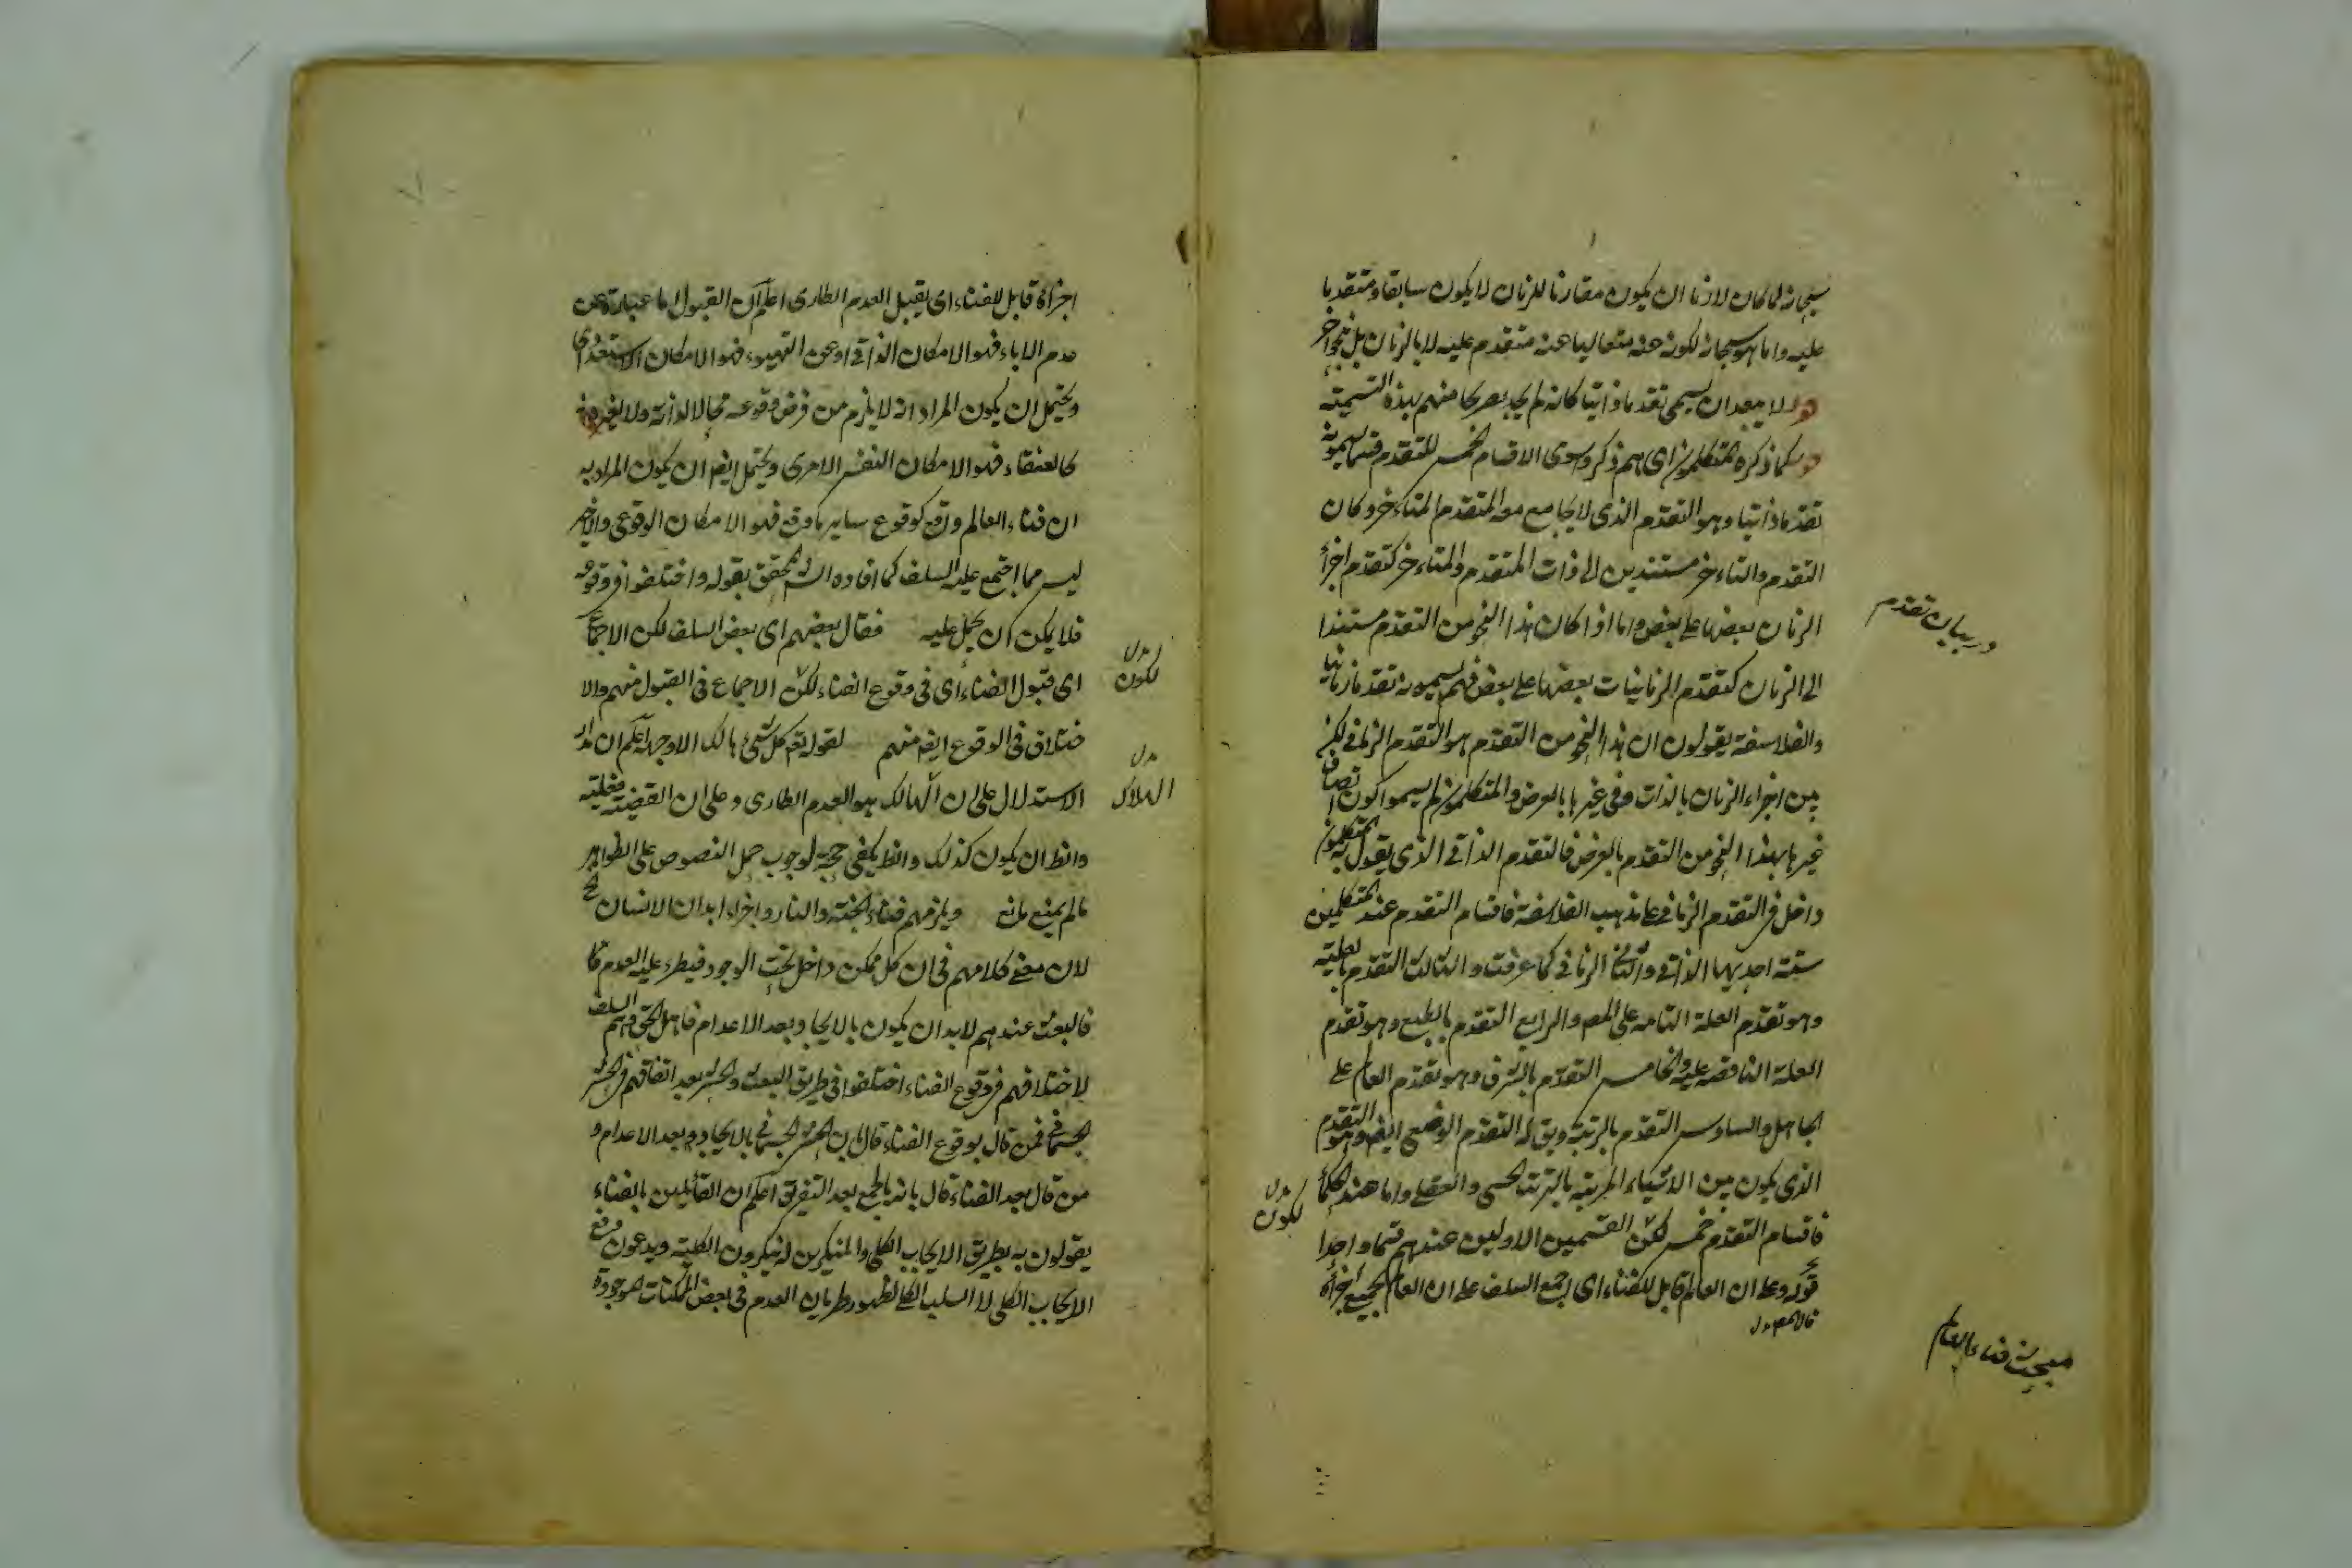 سبحانه لما كان لازما ان يكون مقارنا للزمان لا يكون سابقا ومتقدما
عليه واما هو سبحانه لكونه عنه متعاليا عنه متقدم عليه لا بالزمان بل بنحو آخر
ولا يبعدان يسمى تقدما ذاتيا كانه لم يجد تصريحا منهم بهذه التسمية
كما ذكره المتكلمون اى هم ذكروا سوى الاقسام الخمس للتقدم قسما يسمونه
تقدما ذاتيا وهو التقدم الذى لا يجامع معه المتقدم المتاءخر وكان
التقدم والتاءخر مستندين الى ذات المتقدم والمتاءخر كتقدم اجزاء
الزمان بعضها على بعض واما اذا كان هذا النحو من التقدم مستندا
الى الزمان كتقدم الزمانيات بعضها على بعض فهم يسمونه تقدما زمانيا
والفلاسفة يقولون ان هذا النحو من التقدم هو التقدم الزمانى لكنه
بين اجزاء الزمان بالذات وفى غيرها بالعرض والمتكلمون لم يسموا كون اتصاف
غيرها بهذا النحو من التقدم بالعرض فالتقدم الذاتى الذى يقول به المتكلمون
داخل فى التقدم الزمانى على مذهب الفلاسفة فاقسام التقدم عند المتكلمين
ستة احديها الذاتى والثانى الزمانى كما عرفت والثالث التقدم بالعلية
وهو تقدم العلة التامة على المعـ والرابع التقدم بالطبع وهو تقدم
العلة الناقصة عليه والخامس التقدم بالشرف وهو تقدم العالم على
الجاهل والسادس التقدم بالرتبة ويق له التقدم الوضعى ايضـ وهو التقدم
الذى يكون بين الاشياء المرتبة بالترتب الحسى والعقلى واما عند الحكماء
فاقسام التقدم خمس لكن القسمين الاولين عندهم قسما واحدا
قوله وعلى ان العالم قابل للفناء اى اجمع السلف على ان العالم بجميع اجزائه
در بيان تقدم
لكون
مبحث فناء العالم
اجزائه قابل للفناء اى يقبل العدم الطارى اعلم ان القبول اما عبارة عن
عدم الاباء فهو الامكان الذاتى او عن التهيوء فهو الامكان الاستعدادى
ويحتمل ان يكون المراد انه لا يلزم من فرض وقوعه محالا لذاته ولا لغيره
كالعنقاء فهو الامكان النفس الامرى ويحتمل ايضـ ان يكون المراد به
ان فناء العالم وقع كوقوع ساير ما وقع فهو الامكان الوقوعى والاخير
ليس مما اجتمع عليه السلف كما افاده الشـ المحقق بقوله واختلفوا فى وقوعه
فلا يمكن ان يحمل عليه فقال بعضهم اى بعض السلف لكن الاجماع
اى قبول الفناء اى فى وقوع الفناء لكن الاجماع فى القبول منهم والا
ختلاف فى الوقوع ايضـ منهم لقوله تعـ كل شىء هالك الا وجهه اعلم ان مدار
الاستدلال على ان الهالك هو العدم الطارى وعلى ان القضية فعلية
والظ ان يكون كذلك والظ يكفى حجة لوجوب حمل النصوص على الظواهر
مالم يمنع مانع ويلزمهم فناء الجنة والنار واجزاء ابدان الانسان
لان معنى كلامهم فى ان كل ممكن داخل تحت الوجود فيطرء عليه العدم
فالبعث عندهم لابد ان يكون بالايجاد بعد الاعدام فاهل الحق وهم السلف
لاختلافهم فى وقوع الفناء اختلفوا فى طريق البعث والحشر بعد اتفاقهم فى الحشر
الجسمانى فمن قال بوقوع الفناء قال بان الحشر الجسمانى بالايجاد بعد الاعدام و
من قال بعد الفناء قال بانه بالجمع بعد التفريق اعلم ان القائلين بالفناء
يقولون به بطريق الايجاب الكلى والمنكرين له ينكرون الكلية ويدعون رفع
الايجاب الكلى لا السلب الكلى لظهور طريان العدم فى بعض الممكنات الموجودة
لكون
الهلاك